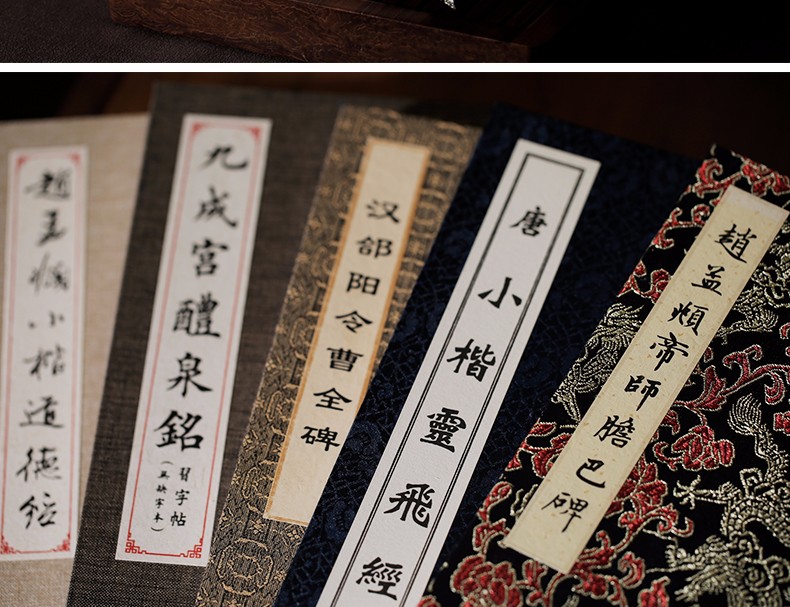 趙孟頫小楷道德經
九成宮醴泉銘
習字帖
（無缺字本）
汉郃阳令曹全碑
唐小楷靈飛經
趙孟頫帝師膽巴碑